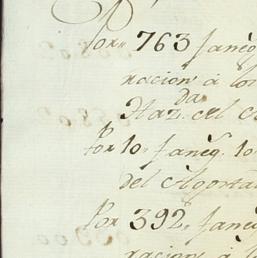 Por,, 763 faneg
racion à los
Haz.da del A
Por 10,, faneg. 10
del Aporta
Por 392,, faneg
racion à lo